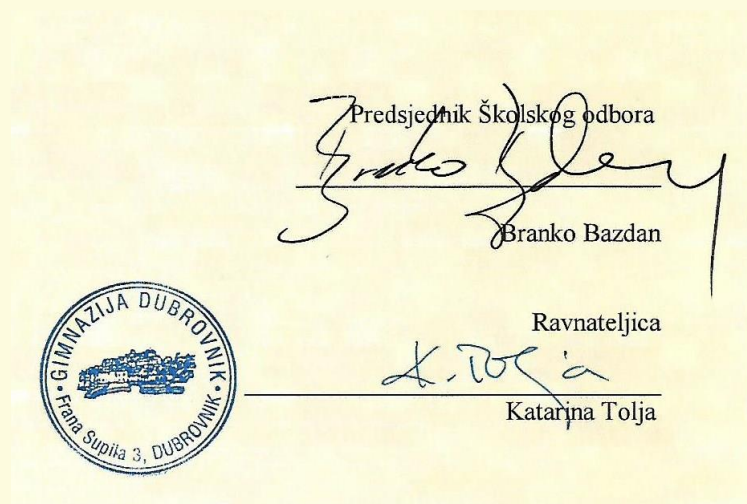 Predsjednik Školskog odbora
Branko Bazdan
Branko Bazdan
Ravnateljica
K. Tolja
Katarina Tolja
GIMNAZIJA DUBROVNIK
Frana Supila 3, DUBROVNIK